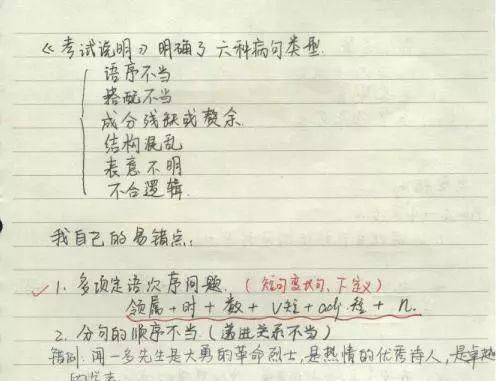 《考试说明》明确了六种病句类型.
语序不当
搭配不当
成分残缺或赘余.
结构混乱
表意不明
不合逻辑.
我自己的易错点:
1. 多项定语次序问题. (短句变长句、下定义)
领属+时+数+v短+adj.短+n.
2. 分句的顺序不当.(递进关系不当)
错例: 闻一多先生是大勇的革命烈士,是热情的优秀诗人,是卓越